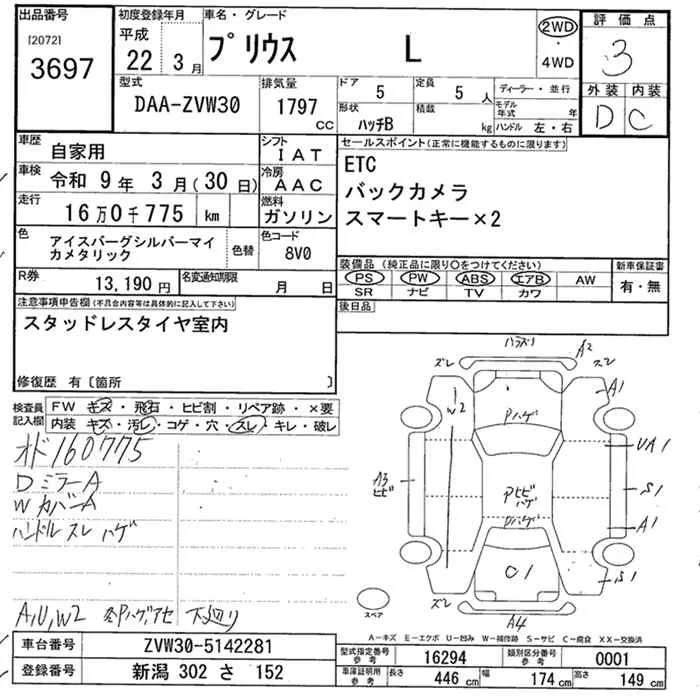 出品番号
[2072]
3697
初度登録年月
平成
22 3月
車名・グレード
プリウス L
2WD
4WD
評価点
3
外装 内装
D C
型式
DAA-ZVW30
排気量
1797
CC
ドア
5
定員
5 人
形状
ハッチB
積載
kg
ディーラー・並行
モデル年式 年
ハンドル 左・右
車歴
自家用
シフト
IAT
車検
令和 9年 3月(30日)
冷房
AAC
走行
16万0千775 km
燃料
ガソリン
色
アイスバーグシルバーマイカメタリック
色替
色コード
8V0
R券
13,190円
名変通知期限
月 日
セールスポイント(正常に機能するものに限ります)
ETC
バックカメラ
スマートキー×2
装備品(純正品に限り○をつけてください)
PS PW ABS エアB AW
SR ナビ TV カワ
新車保証書
有・無
後日品
注意事項申告欄(不具合内容等は具体的に記入して下さい)
スタッドレスタイヤ室内
修復歴 有〔箇所 〕
検査員記入欄
FW キズ・飛石・ヒビ割・リペア跡・×要
内装 キズ・汚レ・コゲ・穴・スレ・キレ・破レ
オド160775
Dミラー A
WカバーA
ハンドルスレ ハゲ
A,U,W2 各Pハゲアセ 下廻り
ハズリ
ズレ
A2
スレ
A1
W2
Pハゲ
UA1
A3
ヒビ
S1
Pヒビ
ハゲ
Pハゲ
A1
C1
S1
ズレ
A4
スペア
A-キズ E-エクボ U-凹み W-補修跡 S-サビ C-腐食 XX-交換済
車台番号
ZVW30-5142281
登録番号
新潟 302 さ 152
型式指定番号
参考
16294
類別区分番号
参考
0001
車庫証明用
参考
長さ 446 cm
幅 174 cm
高さ 149 cm